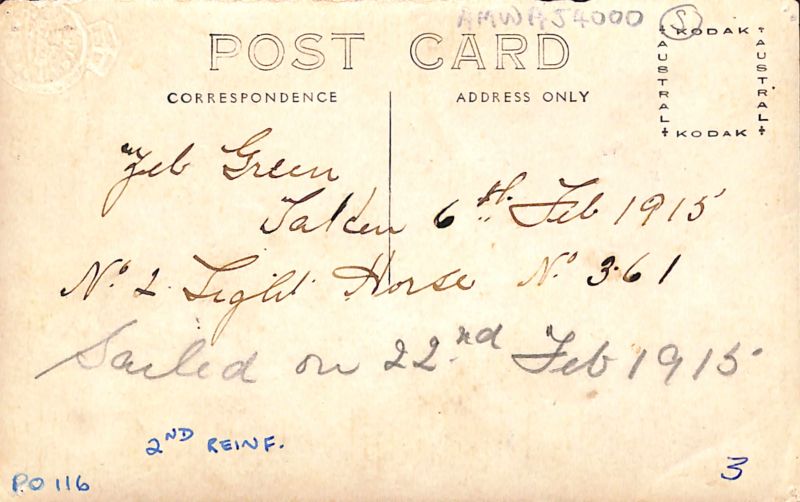 AMWHJ4000 S
POST CARD
CORRESPONDENCE
ADDRESS ONLY
KODAK
AUSTRAL
AUSTRAL
KODAK
"Zeb Green
Taken 6th Feb 1915
No 2 Light Horse No 361
Sailed on 22nd Feb 1915
2ND REINF.
PO 116
3